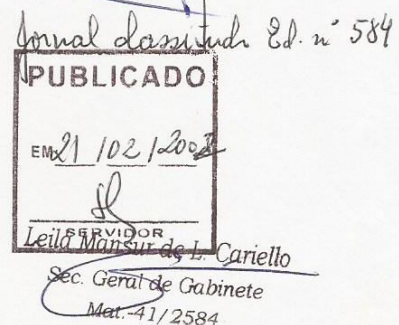 Jornal Classitudo Ed. nº 584
PUBLICADO
EM 21 / 02 / 2002
SERVIDOR
Leila Mansur de L. Cariello
Sec. Geral de Gabinete
Mat.-41/2584